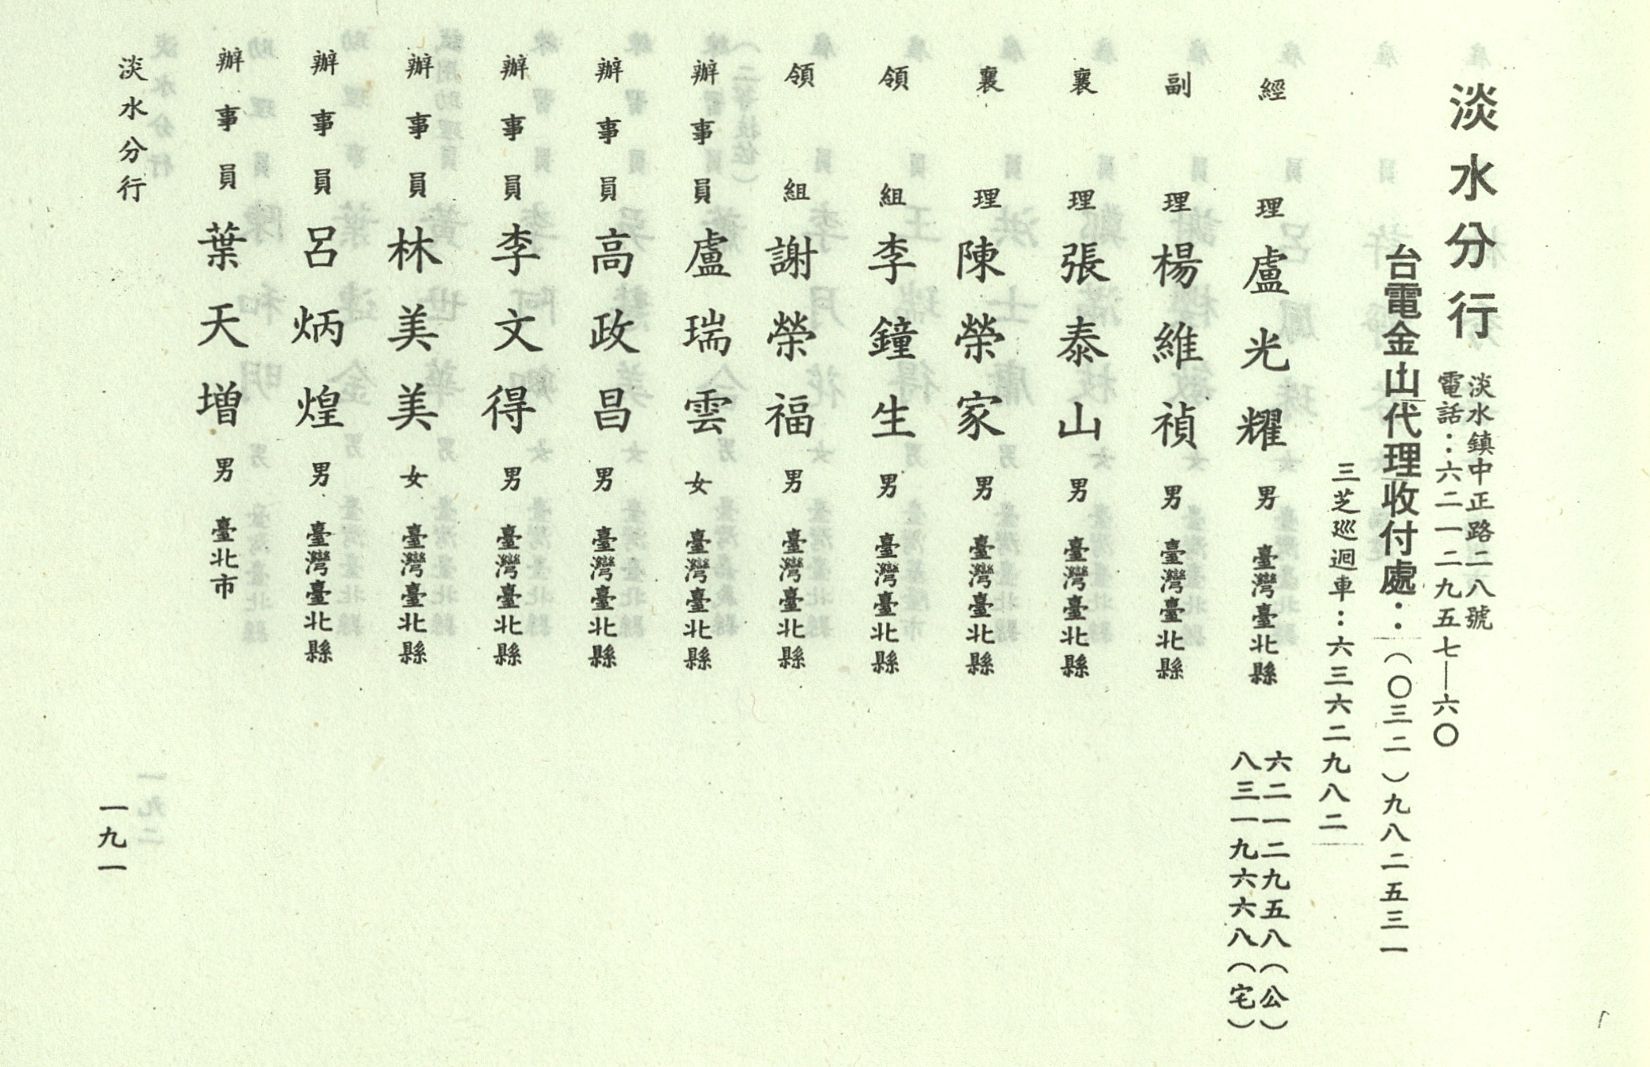 淡水分行
淡水鎮中正路二八號
電話：六二一二九五七—六〇
台電金山代理收付處：（〇三二）九八二五三一
三芝巡迴車：六三六二九八二
經理 盧光耀 男 臺灣臺北縣
六二一二九五八（公）
八三一九六六八（宅）
副理 楊維禎 男 臺灣臺北縣
襄理 張泰山 男 臺灣臺北縣
襄理 陳榮家 男 臺灣臺北縣
領組 李鐘生 男 臺灣臺北縣
領組 謝榮福 男 臺灣臺北縣
辦事員 盧瑞雲 女 臺灣臺北縣
辦事員 高政昌 男 臺灣臺北縣
辦事員 李文得 男 臺灣臺北縣
辦事員 林美美 女 臺灣臺北縣
辦事員 呂炳煌 男 臺灣臺北縣
辦事員 葉天增 男 臺北市
淡水分行
一九一